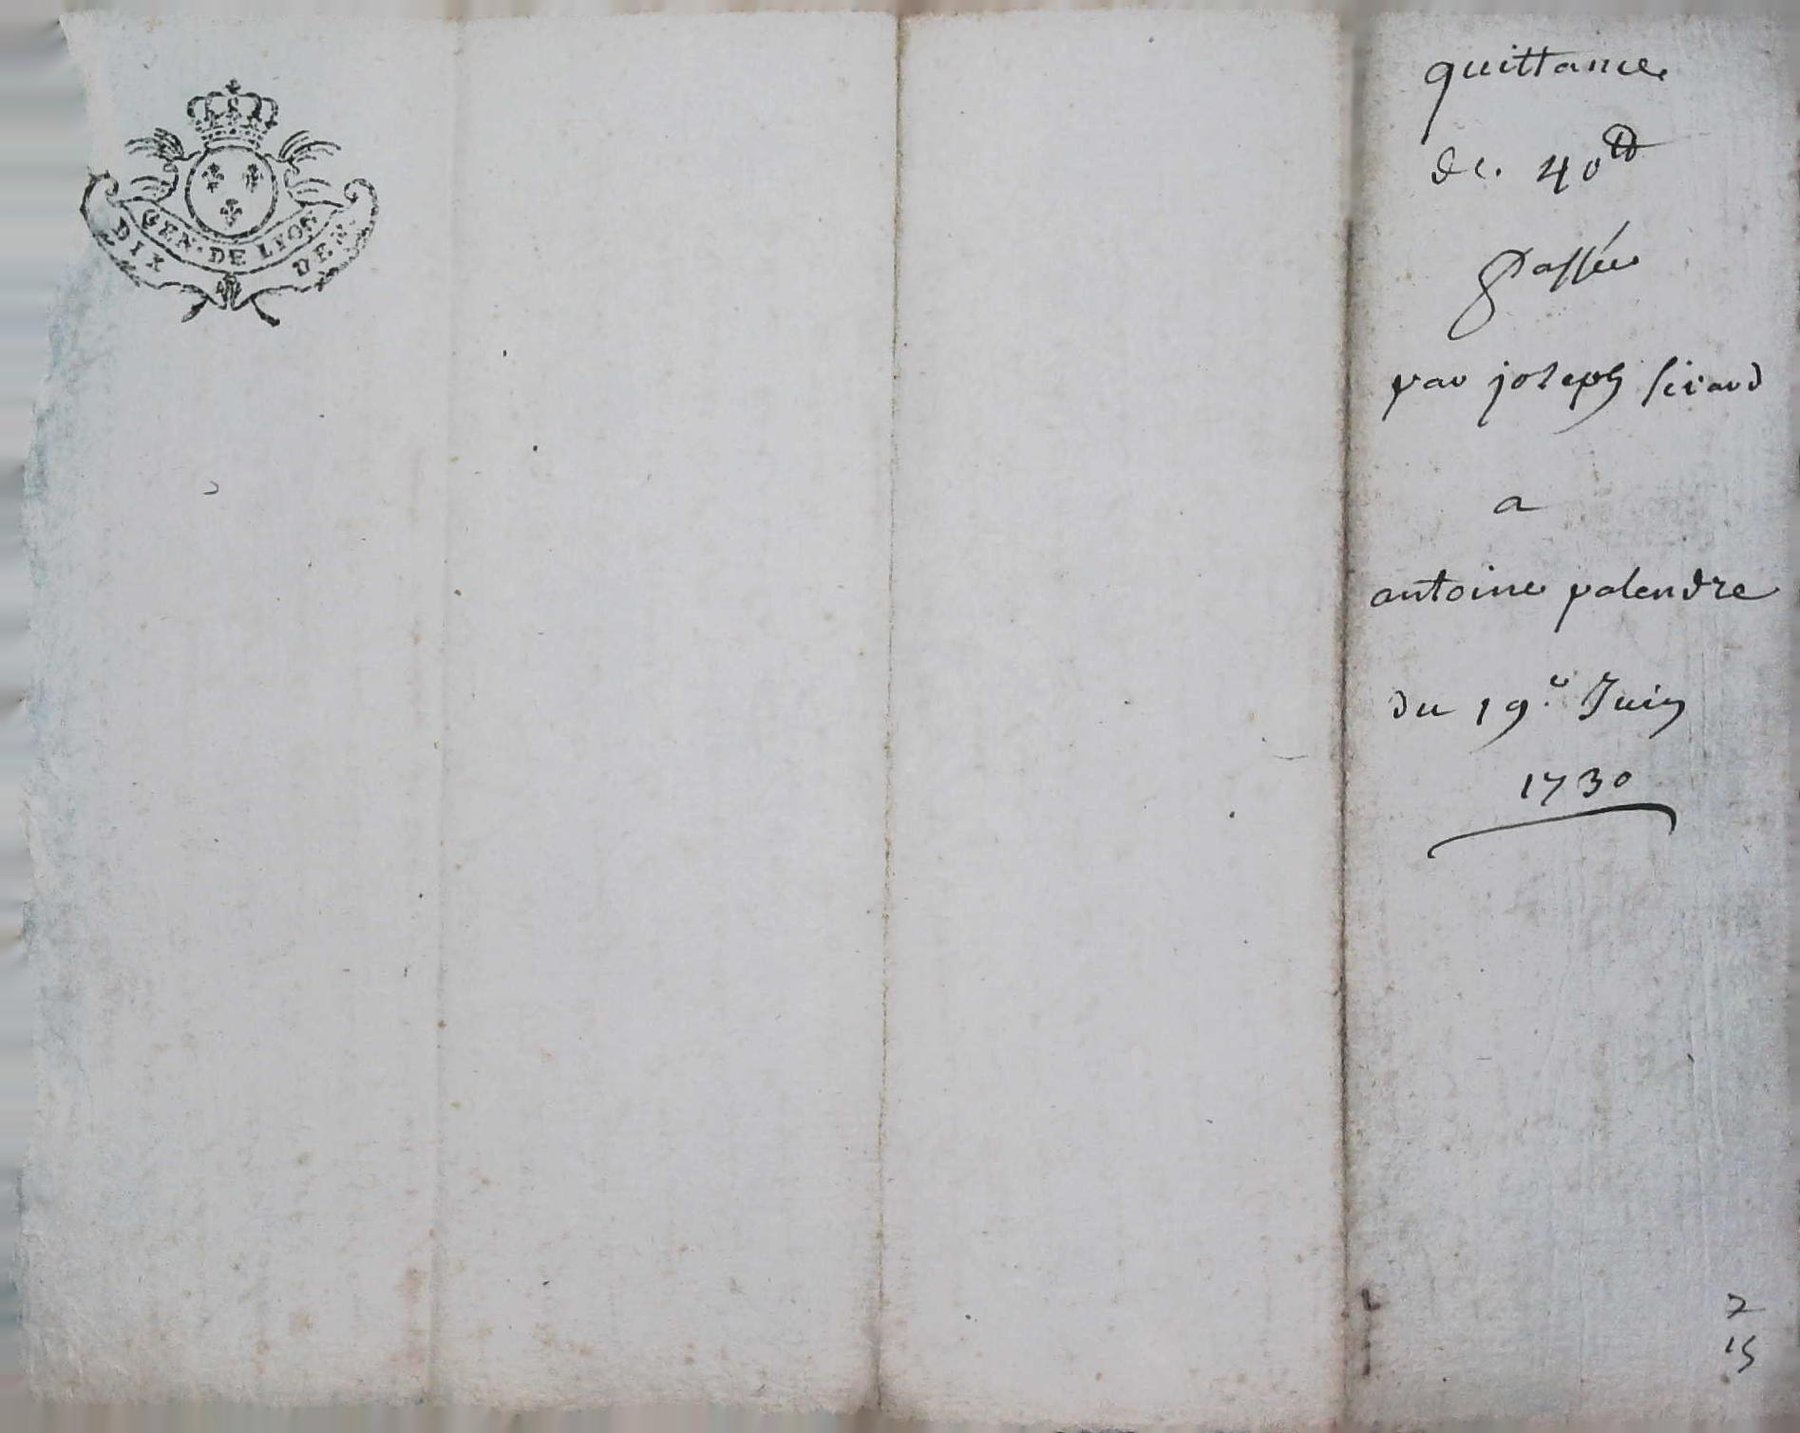 GEN · DE LYON
DIX DEN.
quittance
de. 40 ₶
passée
par joseph sirard
a
antoine palendre
du 19.e Juin
1730
2
15